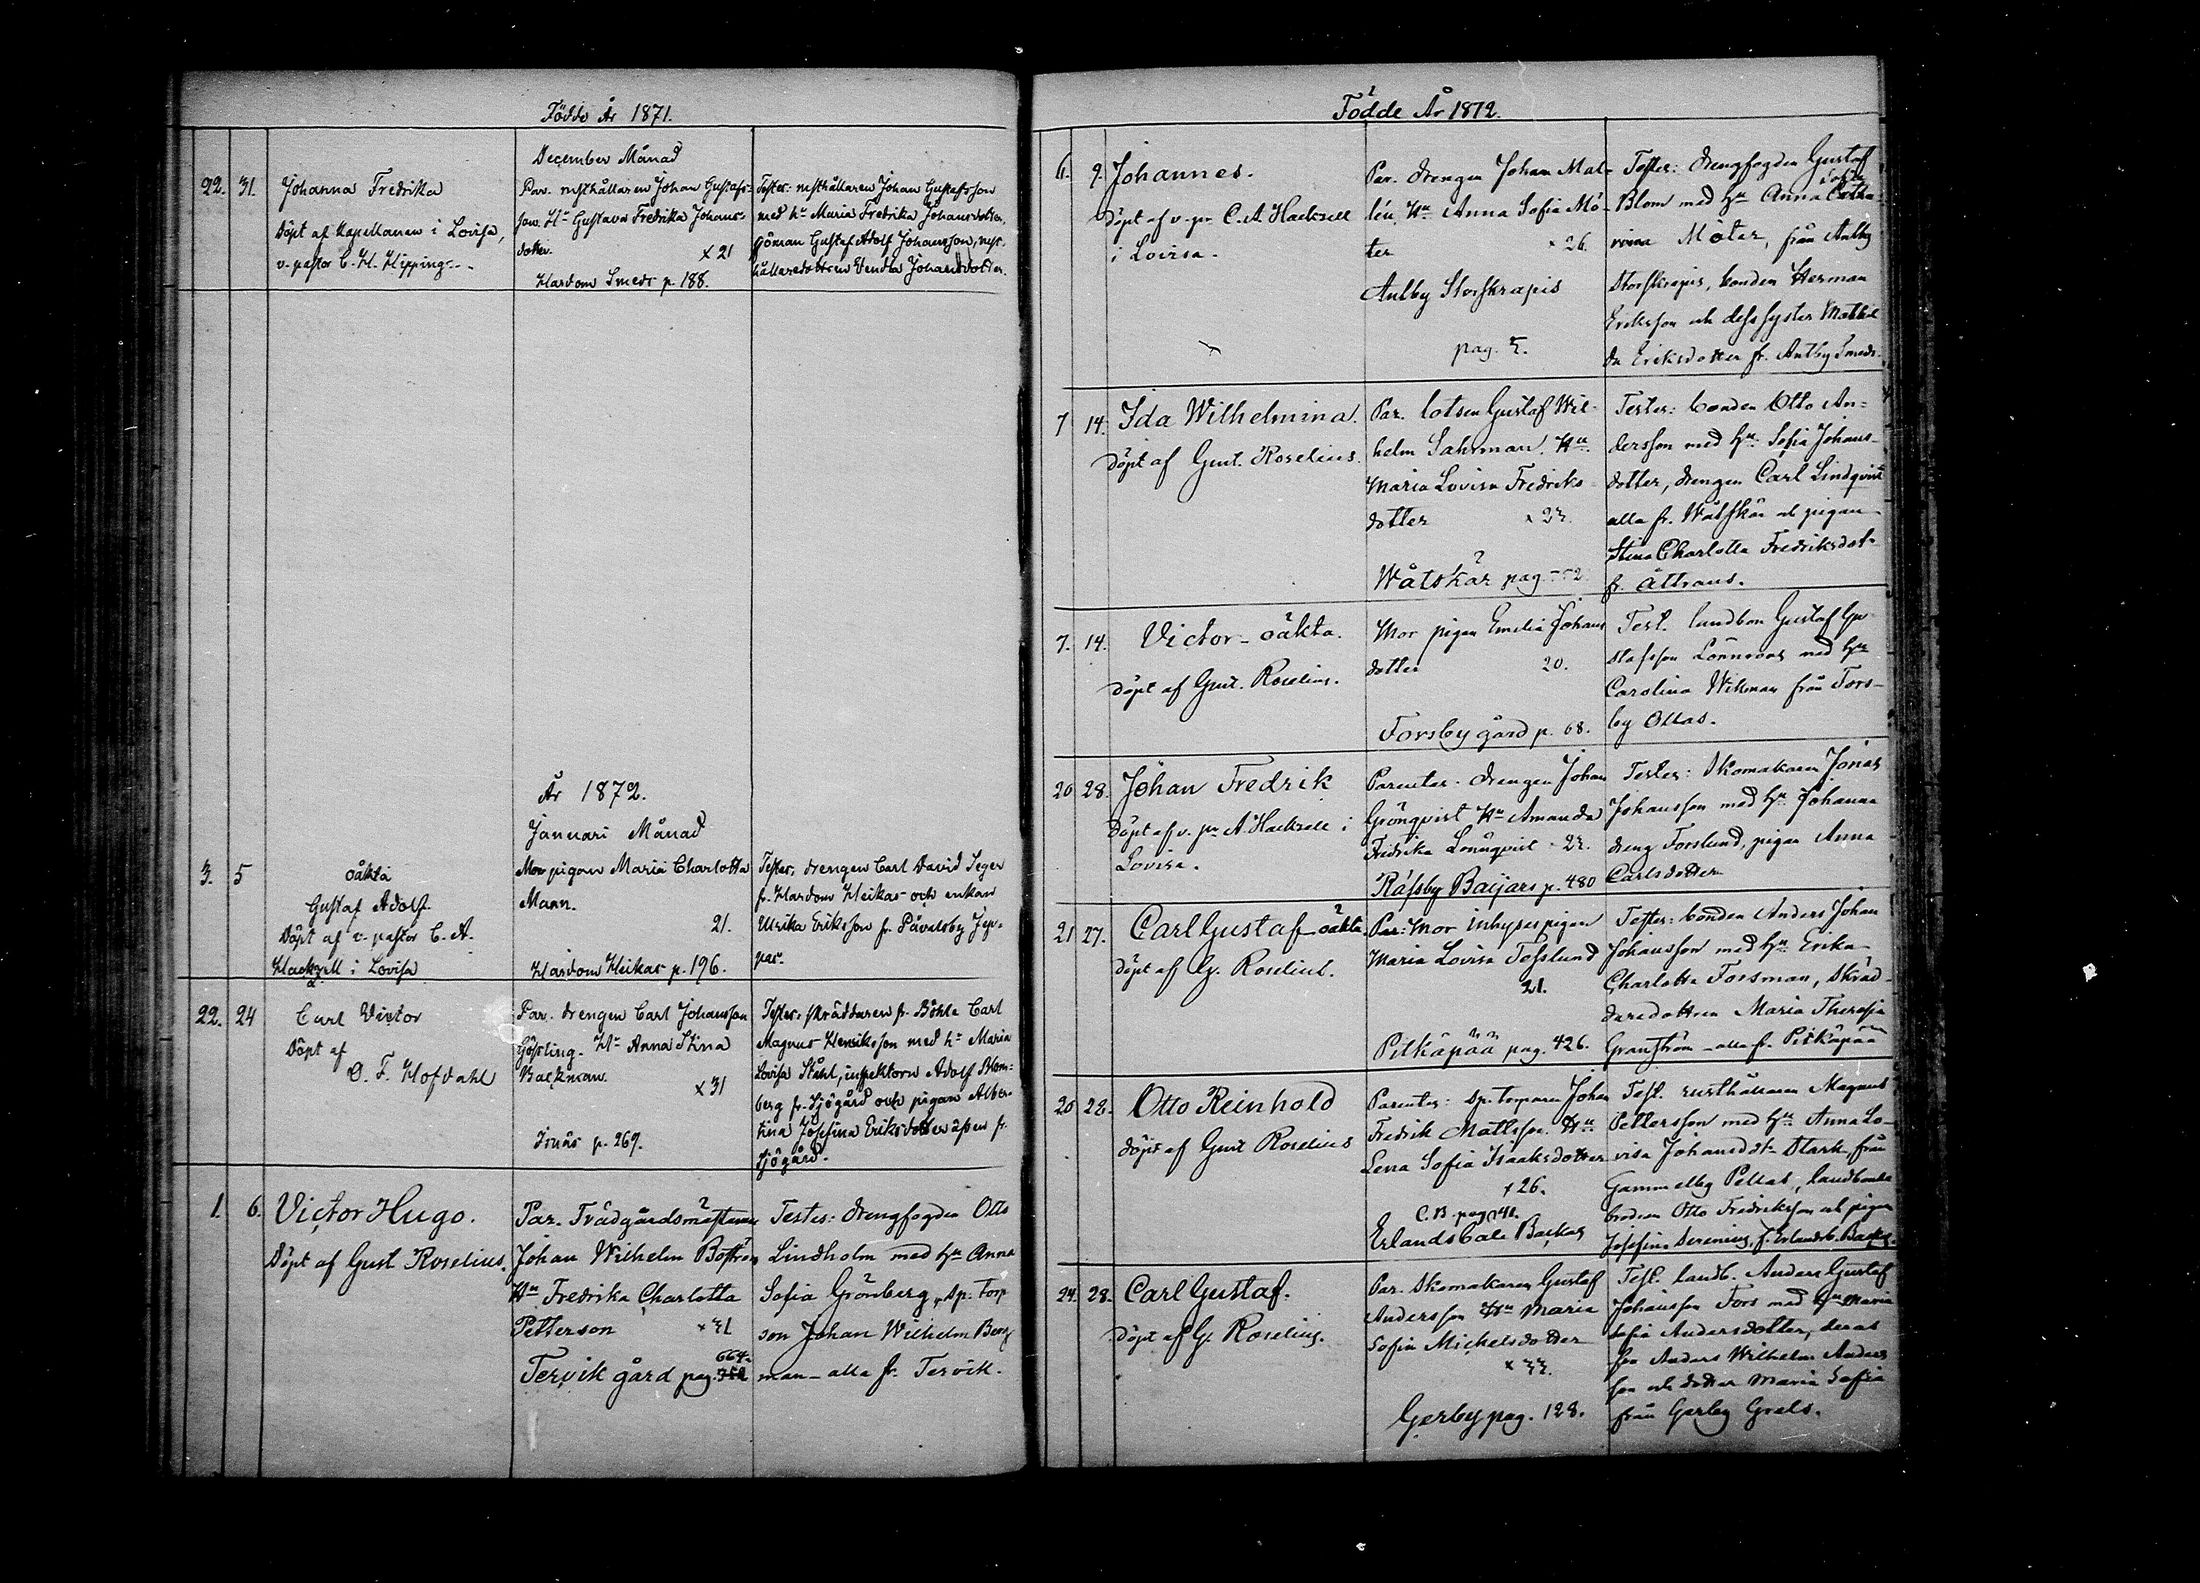 Födde År 1871.
December Månad
22. 31. Johanna Fredrika
Döpt af Kapellanen i Lovisa,
v. pastor C. H. Hipping.
Par. rusthållaren Johan Gustafs-
son. Hu Gustava Fredrika Johans-
dotter. x 21
Hardom Smeds p. 188.
Testes: rusthållaren Johan Gustafsson
med hu Maria Fredrika Johansdotter,
Adolf Johansson, rust-
hållaredottren Vendla Johansdotter.
År 1872.
Januari Månad
3. 5 oäkta
Gustaf Adolf
Döpt af v. pastor C. A.
Hackzell i Lovisa
Mor pigan Maria Charlotta
Mann.
21.
Hardom Heikas p. 196.
Testes: drengen Carl David Seger
fr. Hardom Heikas och enkan
Ulrika Eriksson fr. Påvalsby Jep-
pas.
22. 24 Carl Victor
Döpt af
O. F. Hofdahl
Par. drengen Carl Johansson
Gösling. Hu Anna Stina
Backman.
x 31
Isnäs p. 269.
Testes: skräddaren fr. Böhle Carl
Magnus Henriksson med hu Maria
Lovisa Ståhl, inspektorn Adolf Blom-
berg fr. Sjögård och pigan Alber-
tina Josefina Eriksdotter äfven fr.
Sjögård.
1. 6. Victor Hugo.
Döpt af Gust Roselius.
Par. Trädgårdsmästaren
Johan Wilhelm Boström
Hu Fredrika Charlotta
Petterson x 31
664.
Tervik gård pag. 352
Testes: drengfogden Otto
Lindholm med hu Anna
Sofia Grönberg, Sp. torp
son Johan Wilhelm Berg
man - alla fr. Tervik.
Födde År 1872.
6. 9. Johannes.
Döpt af v. pr C. A Hackzell
i Lovisa.
Par. drengen Johan Mal-
lén Hu Anna Sofia Mö-
ter x 26.
Antby Storskrapis
pag. 5.
Testes: drengfogden Gustaf
Sofia
Blom med hu Anna Catha-
rina Möter, från Antby
Storskrapis, bonden Herman
Eriksson och dess syster Mathil
da Eriksdotter fr. Antby Smeds.
7 14. Ida Wilhelmina.
Döpt af Gust. Roselius.
Par. lotsen Gustaf Wil-
helm Sahrman. Hu
Maria Lovisa Fredriks
dotter x 23.
Våtskär pag.
Testes: bonden Otto An-
dersson med hu Sofia Johans-
dotter, drengen Carl Lindqvist
alla fr. Våtskär och pigan
Stina Charlotta Fredriksdot-
fr.
7. 14. Victor - oäkta.
Döpt af Gust. Roselius.
Mor pigan Emelia Johans
dotter 20.
Forsby gård p. 68.
Test. landbon Gustaf Gu-
stafsson Lönnroos med hu
Carolina Wikman från Fors-
by Ollas.
20 28. Johan Fredrik
Döpt af v. pr A Hackzell i
Lovisa.
Parentes: drengen Johan
Grönqvist Hu Amanda
Fredrika Lönnqvist - 23.
Räfsby Baijars p. 480
Testes: Skomakaren Jonas
Johansson med hu Johanna
dreng Forslund, pigan Anna
Carlsdotter
21 27. Carl Gustaf - oäkta.
Döpt af G. Roselius.
Par: Mor inhysespigan
Maria Lovisa Forslund
21.
Pitkäpää pag. 426.
Testes: bonden Anders Johan
Johansson med hu Erika
Charlotta Forsman, Skräd-
daredottren Maria Theresia
Granström - alla fr. Pitkäpää
20 22. Otto Reinhold
Döpt af Gust Roselius
Parentes: Sp. torparen Johan
Fredrik Mattsson. Hu
Lena Sofia Isaaksdotter
x 26.
C.B. pag 41.
Erlandsböle Backas
Test. rusthållaren Magnus
Pettersson med hu Anna Lo-
visa Johansdotr Stark, från
Gammelby Pellas, landbonde
brodren Otto Fredriksson och pigan
Josefina Serenius, f. Erlandsb. Backas.
24. 28. Carl Gustaf.
Döpt af G. Roselius.
Par. Skomakaren Gustaf
Andersson Hu Maria
Sofia Michelsdotter
x 33.
Gerby pag. 128.
Test. landb. Anders Gustaf
Johansson Fors med hu Maria
Sofia Andersdotter, deras
son Anders Wilhelm Anders
son och dotter Maria Sofia
från Gerby Grels.